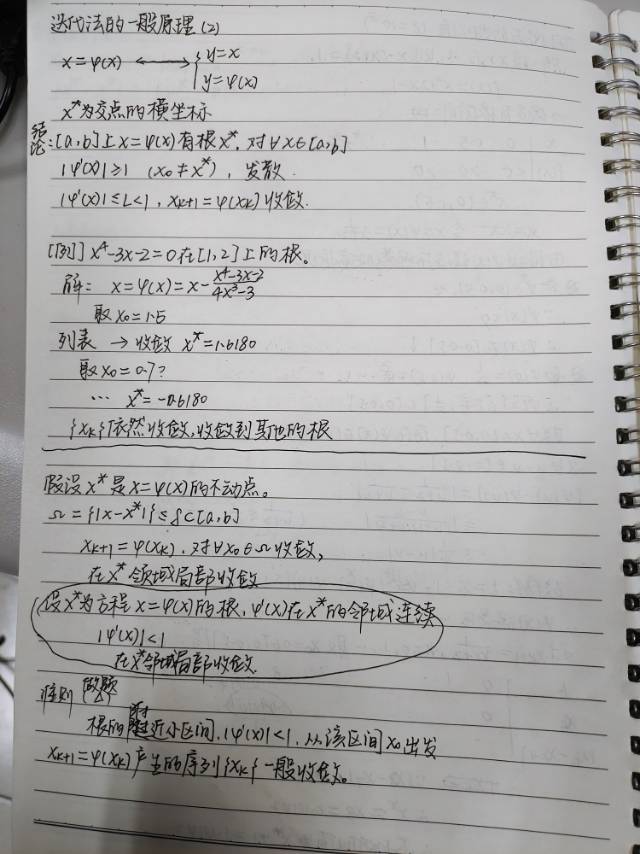 迭代法的一般原理(2)
x=φ(x) ⟷ {y=x
y=φ(x)
x*为交点的横坐标
结论:[a,b]上x=φ(x)有根x*,对∀x∈[a,b]
|φ'(x)|≥1 (x₀≠x*),发散.
|φ'(x)|≤L<1,xₖ₊₁=φ(xₖ)收敛.
[例] x⁴-3x-2=0在[1,2]上的根。
解: x=φ(x)=x-(x⁴-3x-2)/(4x³-3)
取x₀=1.5
列表 → 收敛 x*=1.6180
取x₀=0.7?
… x*=-0.6180
{xₖ}依然收敛,收敛到其他的根
假设x*是x=φ(x)的不动点。
Ω={|x-x*|}≤δ⊂[a,b]
xₖ₊₁=φ(xₖ).对∀x₀∈Ω收敛,
在x*领域局部收敛
设x*为方程x=φ(x)的根,φ'(x)在x*的邻域连续
|φ'(x)|<1
在x*邻域局部收敛
准则 做题
根的附近小区间,|φ'(x)|<1,从该区间x₀出发
xₖ₊₁=φ(xₖ)产生的序列{xₖ}一般收敛。